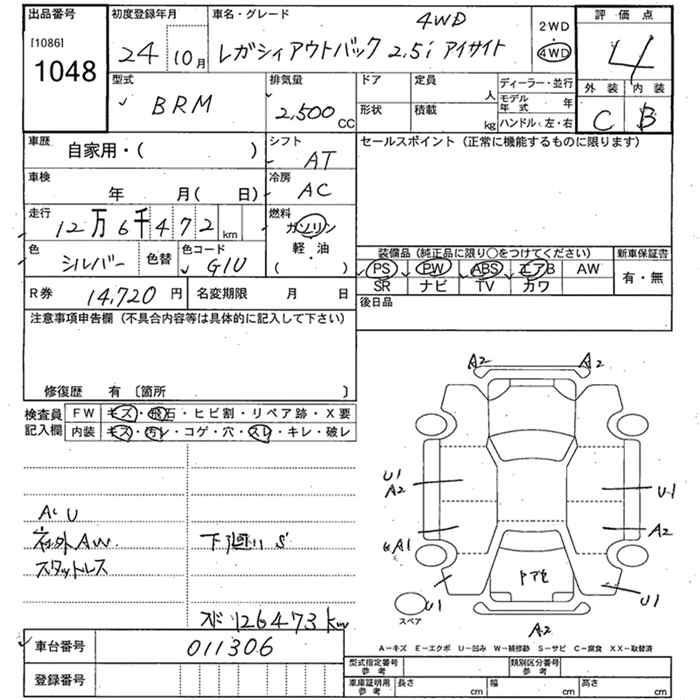 出品番号 初度登録年月 車名・グレード 4WD 2WD 評価点
[1086] 1048 24 10月 レガシィアウトバック 2.5i アイサイト 4WD 4
型式 排気量 ドア 定員 人 ディーラー・並行 外装 内装
BRM 2,500 CC 形状 積載 kg モデル年式 年 C B
ハンドル(左・右)
車歴 自家用・( ) シフト AT セールスポイント (正常に機能するものに限ります)
車検 年 月( 日) 冷房 AC
走行 12万6千472 km 燃料 ガソリン
軽・油
( )
色 シルバー 色替 色コード G1U
装備品 (純正品に限り○をつけてください) 新車保証書
PS PW ABS エアB AW 有・無
SR ナビ TV カワ
R券 14,720円 名変期限 月 日 後日品
注意事項申告欄 (不具合内容等は具体的に記入して下さい)
修復歴 有 〔箇所 〕
検査員 FW キズ・飛石・ヒビ割・リペア跡・X要
記入欄 内装 キズ・汚レ・コゲ・穴・スレ・キレ・破レ
A2 A2
U1
A2
U1
A2
A1
U1 U1
A2
スペア
社外AW. 下廻り S
スタットレス
126473km
A-キズ E-エクボ U-凹み W-補修跡 S-サビ C-腐食 XX-取替済
車台番号 011306
登録番号
型式指定番号 参考 類別区分番号 参考
車庫証明用 参考 長さ cm 幅 cm 高さ cm